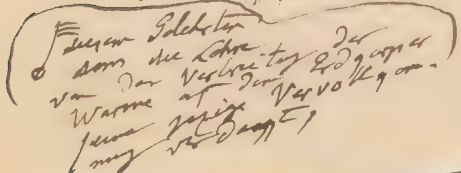 diesem Gelehrten
dem die Lehre
von der Verbreitung der
Wärme auf dem Erdkörper
seine jezige Vervollkom-
nung verdankt,